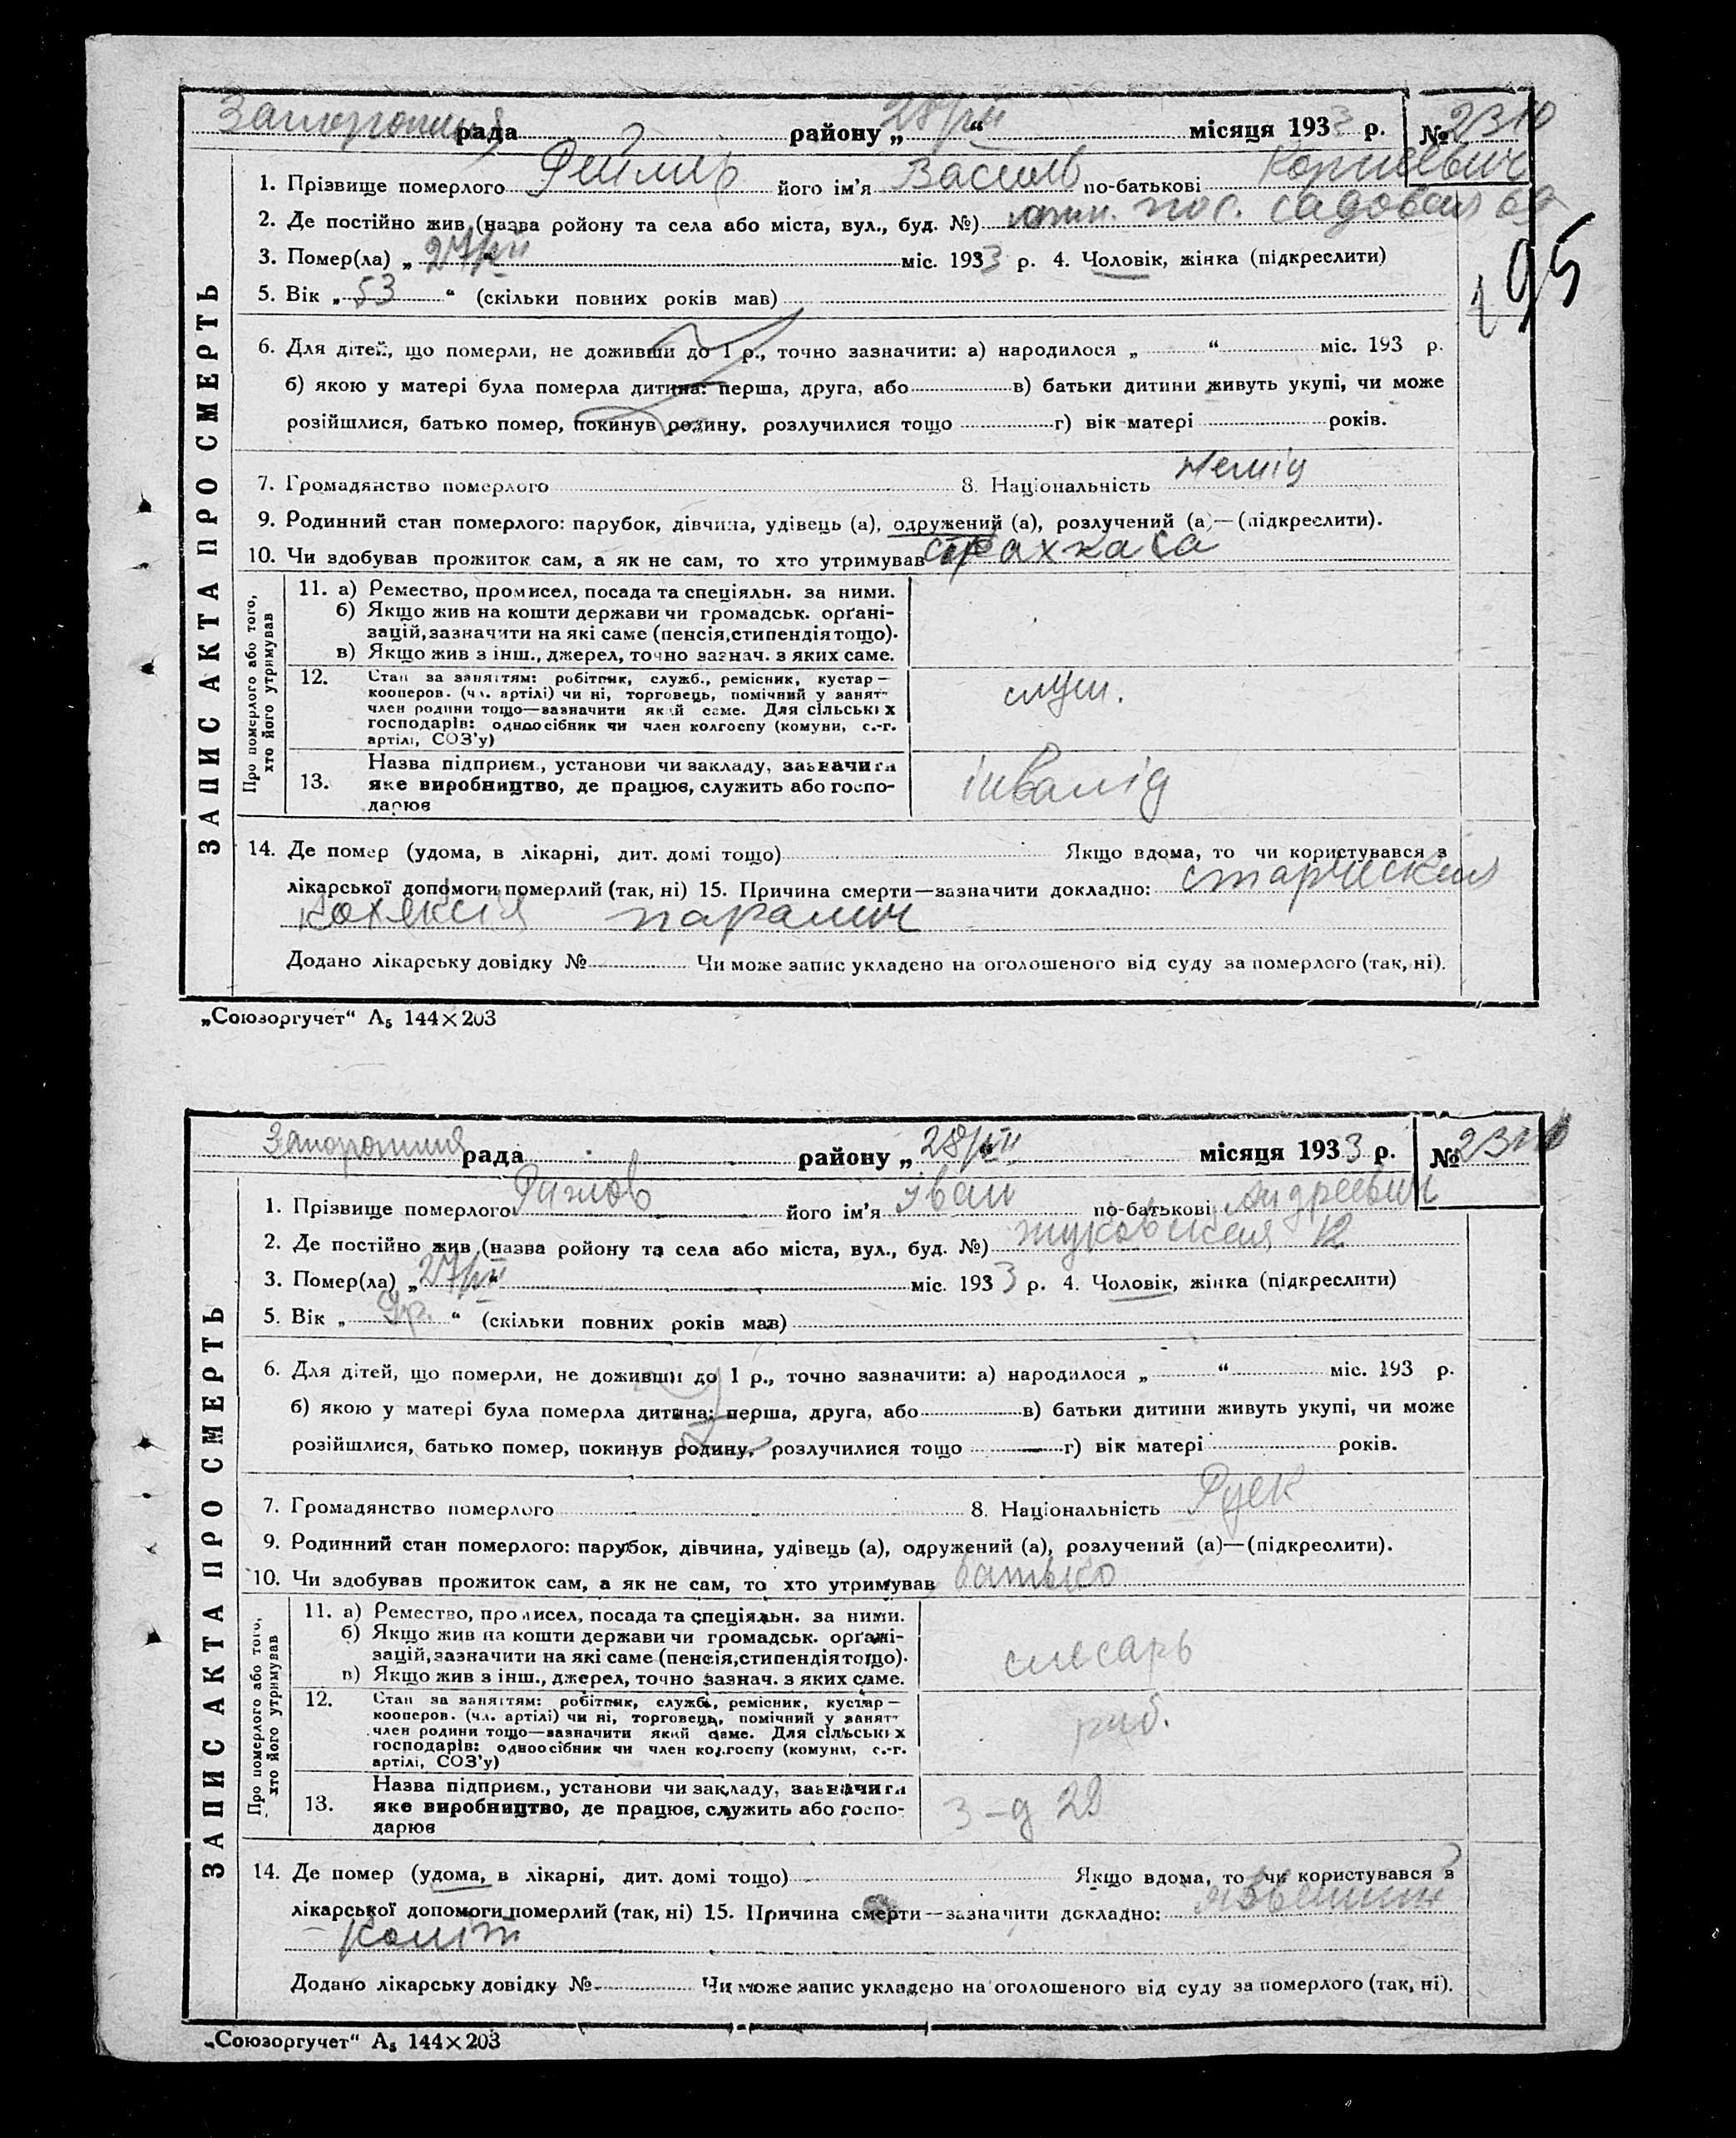 Запорожжя рада району „28/VII“ місяця 1933 р. № 2310
1. Прізвище померлого його ім'я Василь по-батькові Корнеевич
2. Де постійно жив (назва ройону та села або міста, вул., буд. №) пос. Садовая 69
3. Помер(ла) „27/VII“ міс. 1933 р. 4. Чоловік, жінка (підкреслити)
195
5. Вік „53“ (скільки повних років мав)
6. Для дітей, що померли, не доживши до 1 р., точно зазначити: а) народилося „ “ міс. 193 р.
б) якою у матері була померла дитина: перша, друга, або в) батьки дитини живуть укупі, чи може
розійшлися, батько помер, покинув родину, розлучилися тощо г) вік матері років.
7. Громадянство померлого 8. Національність Немій
9. Родинний стан померлого: парубок, дівчина, удівець (а), одружений (а), розлучений (а)—(підкреслити).
10. Чи здобував прожиток сам, а як не сам, то хто утримував страхкаса
ЗАПИС АКТА ПРО СМЕРТЬ
Про померлого або того, хто його утримував
11. а) Ремество, промисел, посада та спеціяльн. за ними.
б) Якщо жив на кошти держави чи громадськ. орґані-
зацій, зазначити на які саме (пенсія, стипендія тощо).
в) Якщо жив з інш., джерел, точно зазнач. з яких саме.
12. Стан за заняттям: робітник, служб., ремісник, кустар—
кооперов. (чл. артілі) чи ні, торговець, помічний у занят-
член родини тощо—зазначити який саме. Для сільських
господарів: одноосібник чи член колгоспу (комуни, с.-г.
артілі, СОЗ'у)
служ.
13. Назва підприєм., установи чи закладу, зазначити
яке виробництво, де працює, служить або госпо-
дарює
інвалід
14. Де помер (удома, в лікарні, дит. домі тощо) Якщо вдома, то чи користувався з
лікарської допомоги померлий (так, ні) 15. Причина смерти—зазначити докладно: старческая
кахексія параліч
Додано лікарську довідку № Чи може запис укладено на оголошеного від суду за померлого (так, ні).
„Союзоргучет“ А₅ 144×203
Запорожжя рада району „28/VII“ місяця 1933 р. №
1. Прізвище померлого його ім'я Іван по-батькові Андреевич
2. Де постійно жив (назва ройону та села або міста, вул., буд. №) жуковская 12
3. Помер(ла) „27/VII“ міс. 1933 р. 4. Чоловік, жінка (підкреслити)
5. Вік „ “ (скільки повних років мав)
6. Для дітей, що померли, не доживши до 1 р., точно зазначити: а) народилося „ “ міс. 193 р.
б) якою у матері була померла дитина: перша, друга, або в) батьки дитини живуть укупі, чи може
розійшлися, батько помер, покинув родину, розлучилися тощо г) вік матері років.
7. Громадянство померлого 8. Національність Руск
9. Родинний стан померлого: парубок, дівчина, удівець (а), одружений (а), розлучений (а)—(підкреслити).
10. Чи здобував прожиток сам, а як не сам, то хто утримував батько
ЗАПИС АКТА ПРО СМЕРТЬ
Про померлого або того, хто його утримував
11. а) Ремество, промисел, посада та спеціяльн. за ними.
б) Якщо жив на кошти держави чи громадськ. орґані-
зацій, зазначити на які саме (пенсія, стипендія тощо).
в) Якщо жив з інш., джерел, точно зазнач. з яких саме.
слесарь
12. Стан за заняттям: робітник, служб., ремісник, кустар—
кооперов. (чл. артілі) чи ні, торговець, помічний у занят-
член родини тощо—зазначити який саме. Для сільських
господарів: одноосібник чи член колгоспу (комуни, с.-г.
артілі, СОЗ'у)
роб.
13. Назва підприєм., установи чи закладу, зазначити
яке виробництво, де працює, служить або госпо-
дарює
З-д 29
14. Де помер (удома, в лікарні, дит. домі тощо) Якщо вдома, то чи користувався з
лікарської допомоги померлий (так, ні) 15. Причина смерти—зазначити докладно:
коліт
Додано лікарську довідку № Чи може запис укладено на оголошеного від суду за померлого (так, ні).
„Союзоргучет“ А₅ 144×203